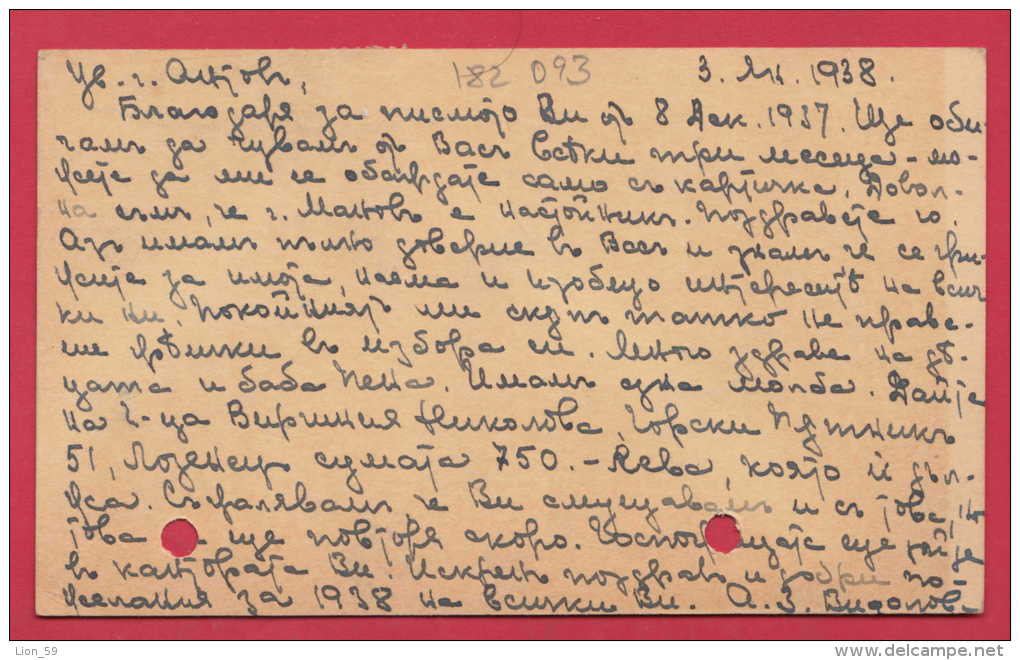 Ув. г. Антовъ, 182 093 3. Ян. 1938.
Благодаря за писмото Ви отъ 8 Дек. 1937. Ще оби-
чамъ да чувамъ отъ Васъ всѣки три месеца – мо-
жете да ми се обаждате само съ картичка. Довол-
на съмъ, че г. Мановъ е настойникъ. Поздравете го.
Азъ имамъ пълно доверие въ Васъ и знамъ че се гри-
жите за имота, наема и изобщо интереситѣ на всич-
ки ни. Покойниятъ ми скъпъ татко не праве-
ше грѣшки въ избора си. Много здраве на дѣ-
цата и баба Пена. Имамъ една молба. Дайте
на г-ца Виргиния Николова, Горски Пѫтникъ
51, Лозенецъ сумата 750.– лева, която ѝ дъл-
жа. Съжалявамъ че Ви смущавамъ и съ това, но
това ще повторя скоро. Госпожицата ще дойде
въ кантората Ви. Искренъ поздравъ и добри по-
желания за 1938 на всички Ви. А. З. Видолов-
Lion_59
delcampe.net